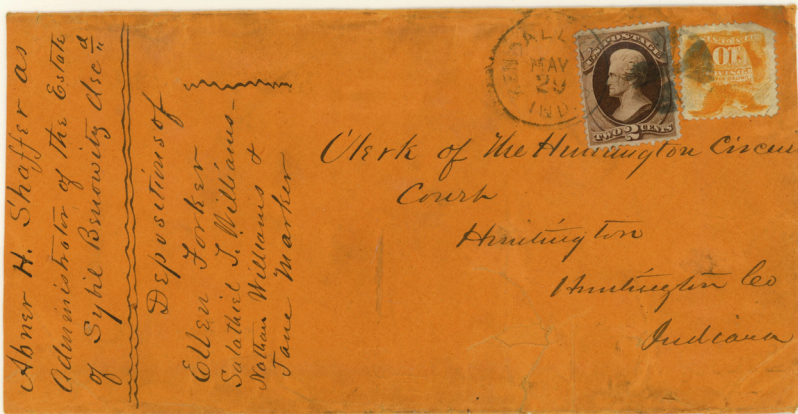 Abner H. Shaffer as
Administrator of the Estate
of Sybil Decd
Depositions of
Ellen Forker
Salathiel T. Williams
Nathan Williams &
Jane Marker
KENDALL
MAY
29
IND
U.S. POSTAGE
TWO 2 CENTS
10
Clerk of The Huntington Circuit
Court
Huntington
Huntington Co
Indiana